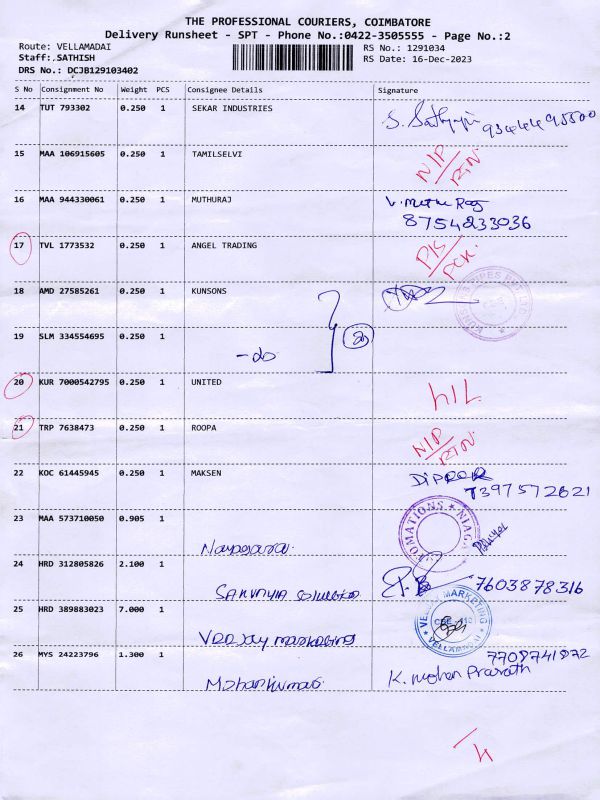 THE PROFESSIONAL COURIERS, COIMBATORE
Delivery Runsheet - SPT - Phone No.:0422-3505555 - Page No.:2
Route: VELLAMADAI RS No.: 1291034
Staff:.SATHISH RS Date: 16-Dec-2023
DRS No.: DCJB129103402
S No Consignment No Weight PCS Consignee Details Signature
14 TUT 793302 0.250 1 SEKAR INDUSTRIES
15 MAA 106915605 0.250 1 TAMILSELVI N/P/RTN.
16 MAA 944330061 0.250 1 MUTHURAJ
8754233036
17 TVL 1773532 0.250 1 ANGEL TRADING
18 AMD 27585261 0.250 1 KUNSONS
19 SLM 334554695 0.250 1 -do
20 KUR 7000542795 0.250 1 UNITED
21 TRP 7638473 0.250 1 ROOPA N/P/RTN.
22 KOC 61445945 0.250 1 MAKSEN
7397572621
23 MAA 573710050 0.905 1
24 HRD 312805826 2.100 1 7603878316
25 HRD 389883023 7.000 1 VEEJAY MARKETING
VEEJAY MARKETING
7708741872
26 MYS 24223796 1.300 1 Mohankumar. K. Mohan Prasath